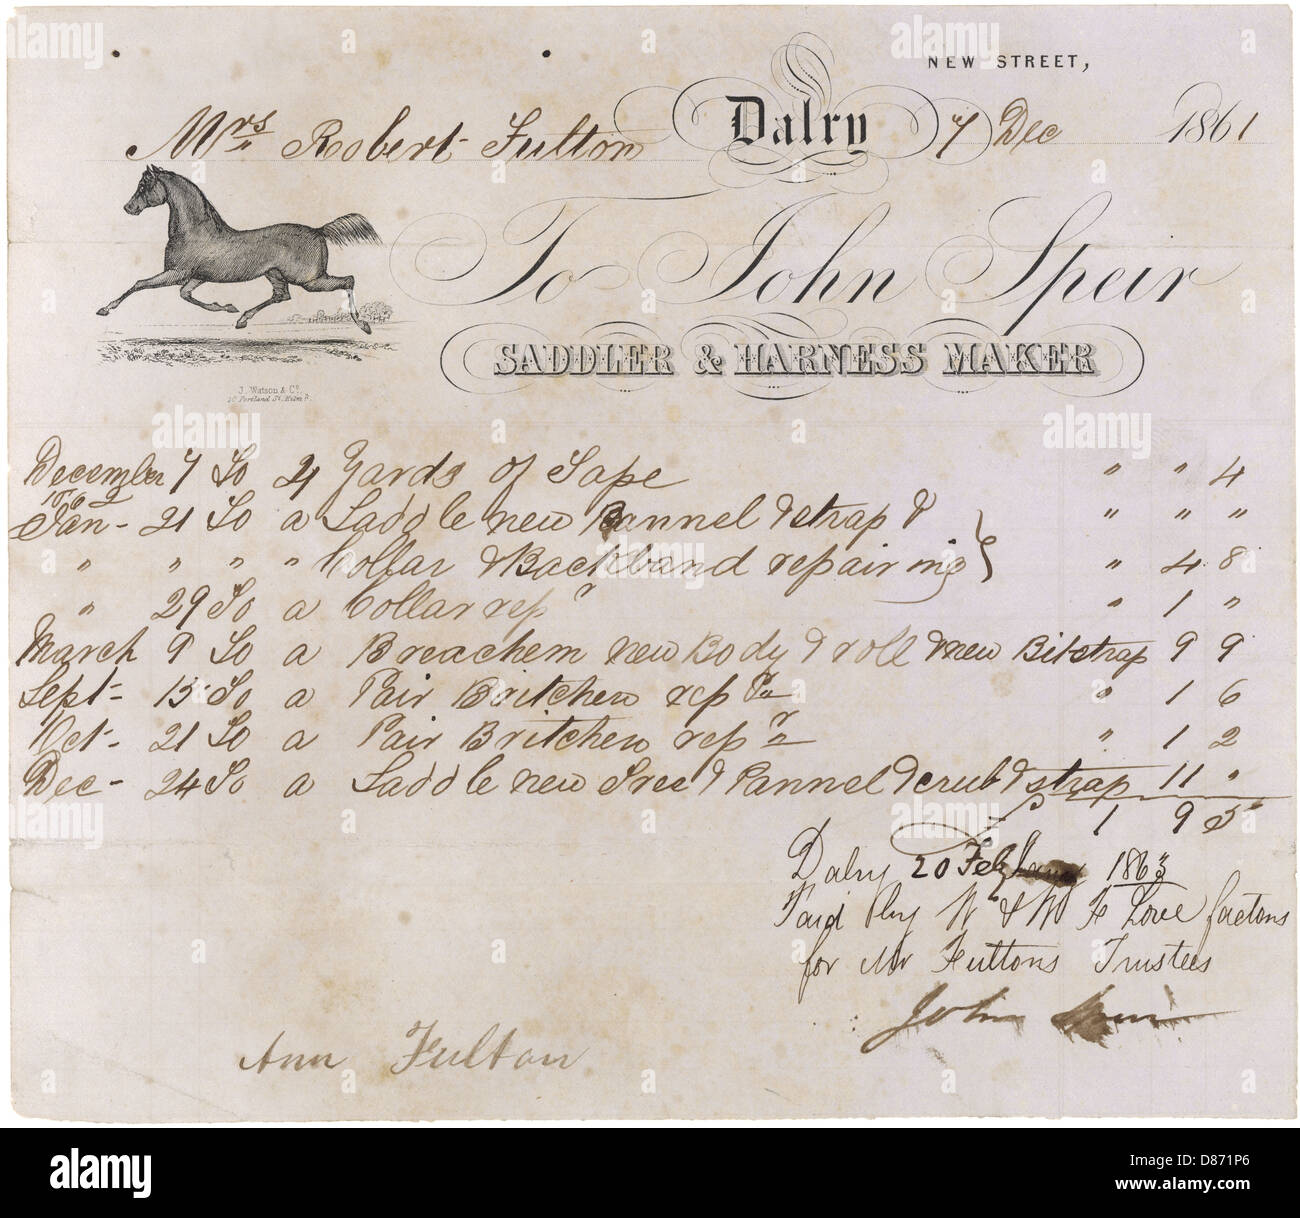 NEW STREET,
Mrs Robert Fulton Dalry 7 Dec 1861
To John Speir
SADDLER & HARNESS MAKER
J. Watson & Co.
December 7 To 2 Yards of Tape " " 4
1862
Jan - 21 To a Saddle new Pannel & strap & " " "
" " " " Collar & Backband repairing " 4 8
" 29 To a Collar repr " 1 "
March 9 To a Breachem new Body & roll & new Bitstrap 9 9
Sept - 15 To a Pair Britchen rep " 1 6
Oct - 21 To a Pair Britchen rep " 1 2
Dec - 24 To a Saddle new Tree & Pannel & crub & strap 11 "
£ 1 9 5
Dalry 20 Feb 1863
Paid By Wm & Love factors
for Mr Fultons Trustees
John
Ann Fulton
alamy
D871P6
www.alamy.com